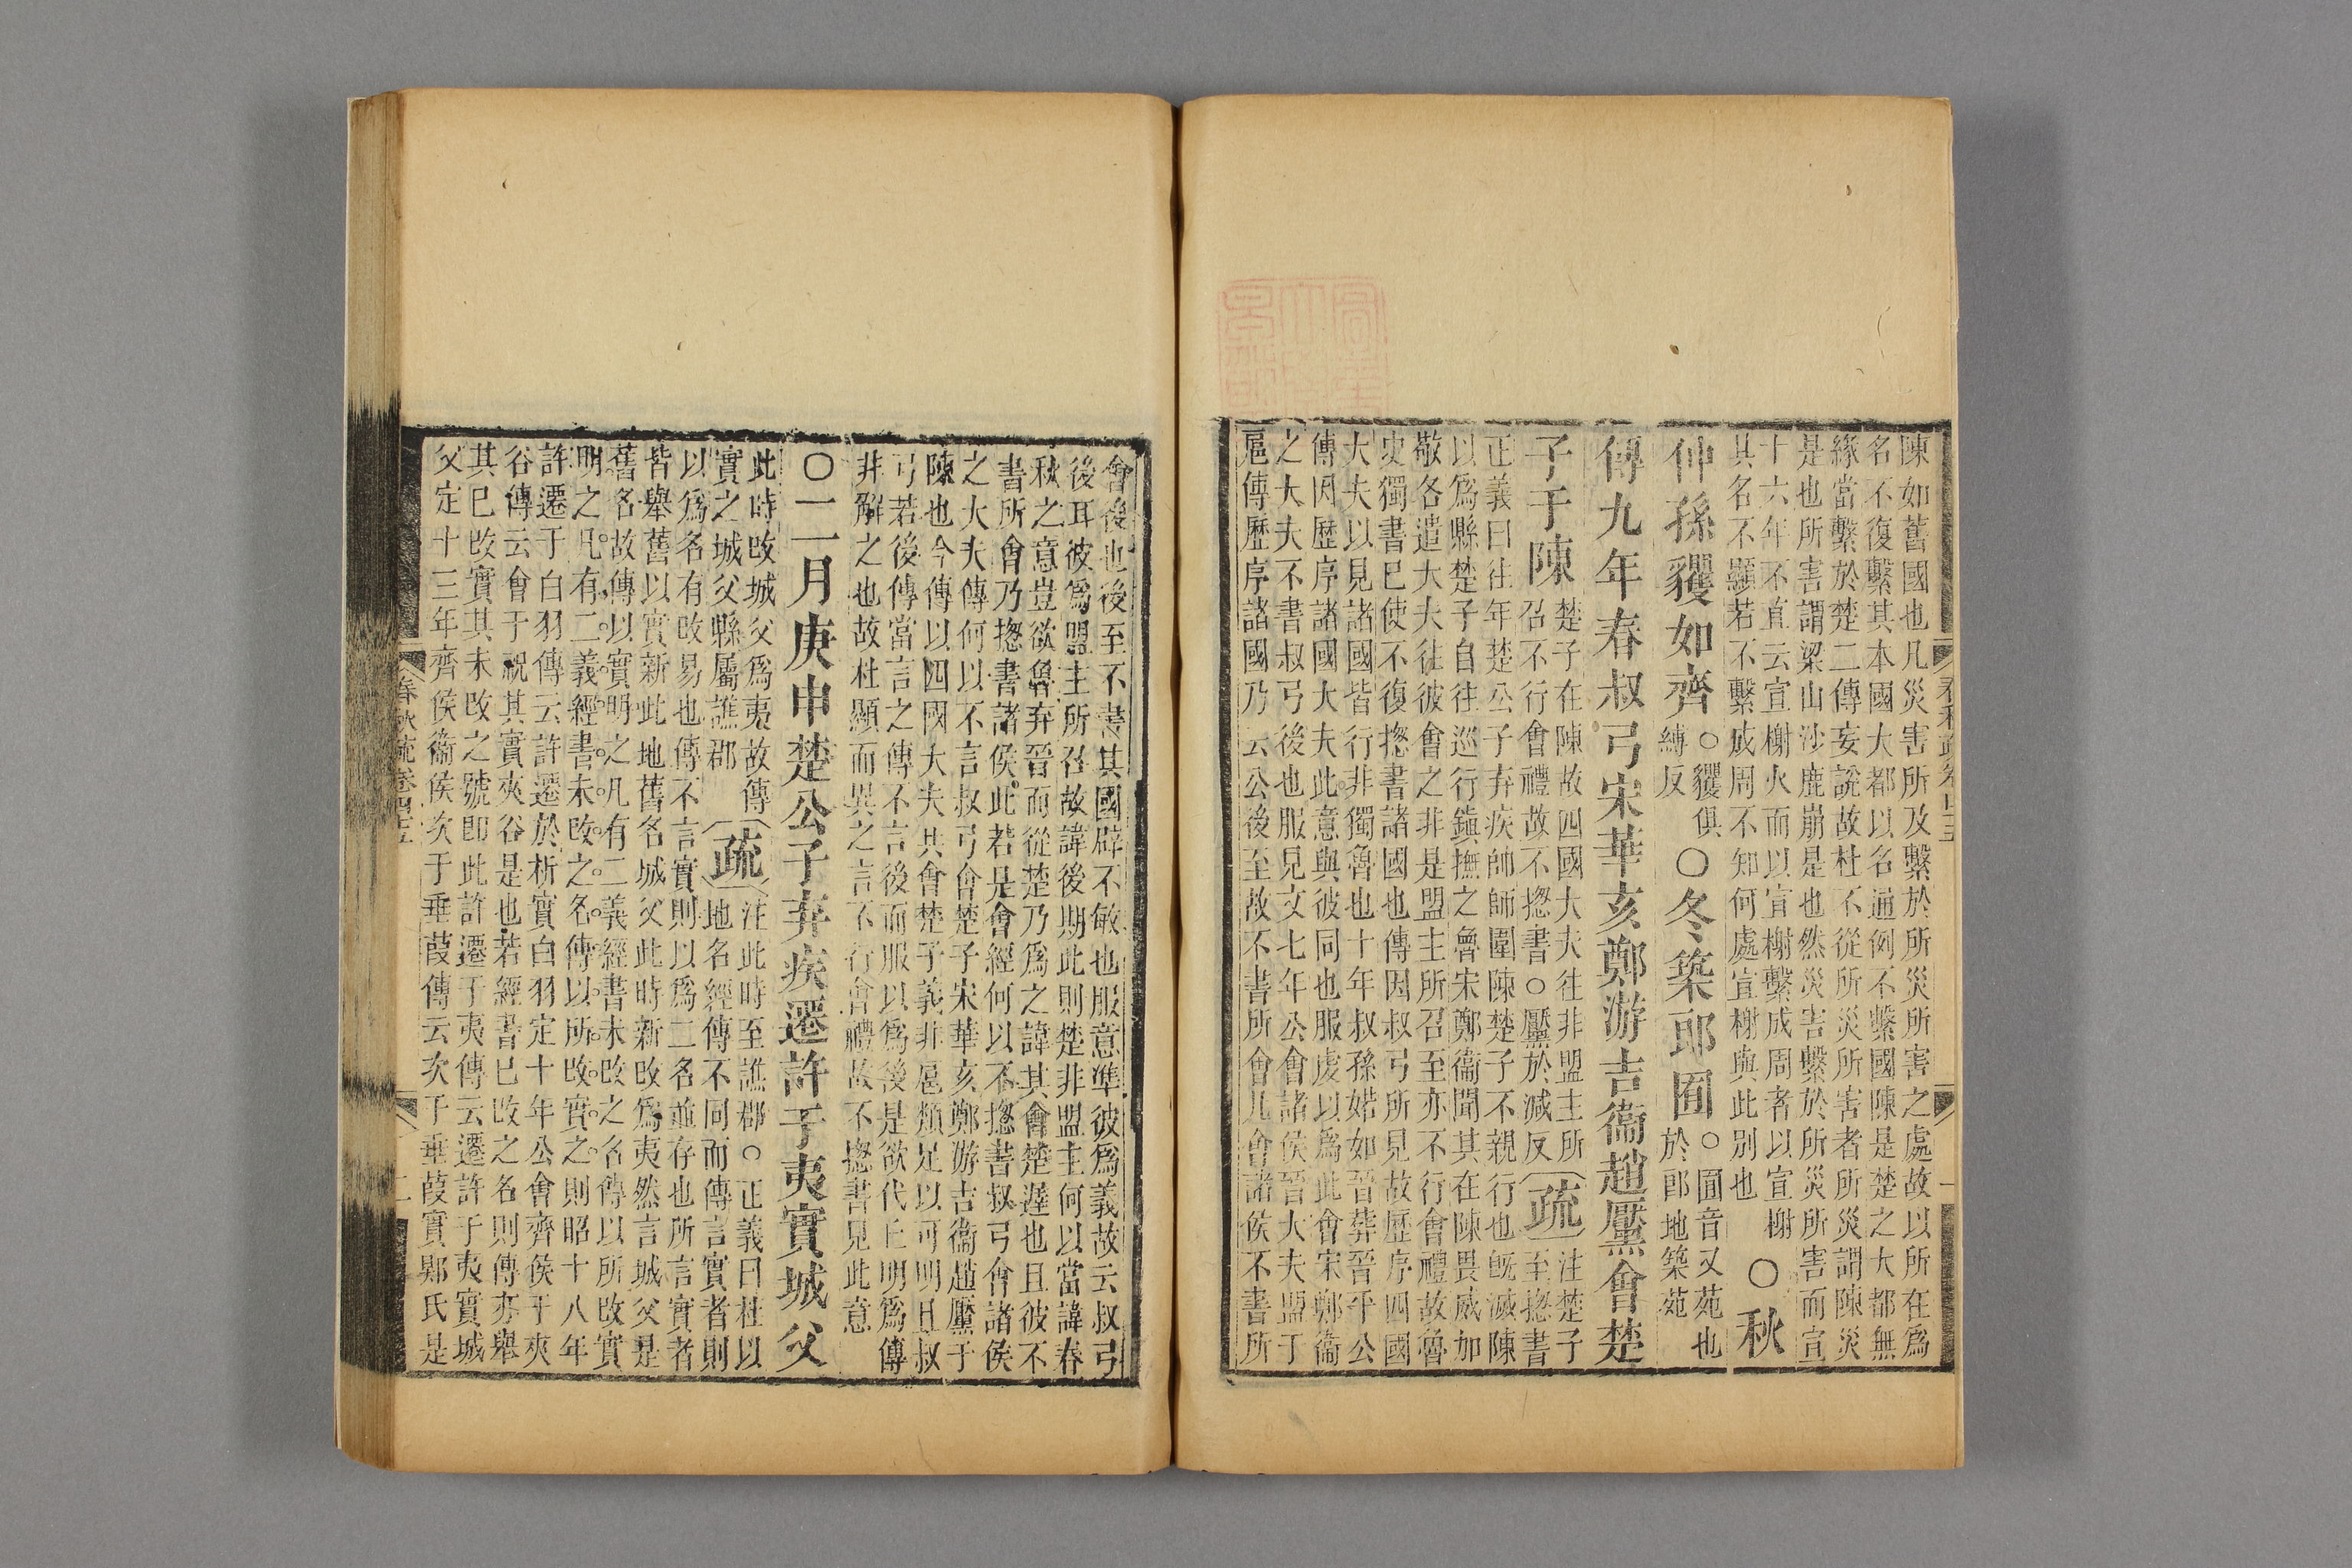 陳如舊國也凡災害所及繫於所災所害之處故以所在爲
名不復繫其本國大都以名通例不繫國陳是楚之大都無
緣當繫於楚二傳妄說故杜不從所災所害者所災謂陳災
是也所害謂梁山沙鹿崩是也然災害繫於所災所害而宣
十六年不直云宣榭火而以宣榭繫成周者以宣榭
其名不顯若不繫成周不知何處宣榭與此別也
〇秋
仲孫貜如齊
○貜俱
縛反
〇冬築郎囿
○囿音又苑也
於郎地築苑
傳九年春叔弓宋華亥鄭游吉衞趙黶會楚
子于陳
楚子在陳故四國大夫往非盟主所
召不行會禮故不揔書○黶於減反
疏
注楚子
至揔書
正義曰往年楚公子弃疾帥師圍陳楚子不親行也旣滅陳
以爲縣楚子自往巡行鎮撫之魯宋鄭衞聞其在陳畏威加
敬各遣大夫往彼會之非是盟主所召至亦不行會禮故魯
史獨書已使不復揔書諸國也傳因叔弓所見故歷序四國
大夫以見諸國皆行非獨魯也十年叔孫婼如晉葬晉平公
傳因歷序諸國大夫此意與彼同也服虔以爲此會宋鄭衞
之大夫不書叔弓後也服見文七年公會諸侯晉大夫盟于
扈傳歷序諸國乃云公後至故不書所會凡會諸侯不書所
會後也後至不書其國辟不敏也服意準彼爲義故云叔弓
後耳彼爲盟主所召故諱後期此則楚非盟主何以當諱春
秋之意豈欲魯弃晉而從楚乃爲之諱其會楚遲也且彼不
書所會乃揔書諸侯此若是會經何以不揔書叔弓會諸侯
之大夫傳何以不言叔弓會楚子宋華亥鄭游吉衞趙黶于
陳也今傳以四國大夫共會楚子義非扈類足以可明且叔
弓若後傳當言之傳不言後而服以爲後是欲代丘明爲傳
非解之也故杜顯而異之言不行會禮故不揔書見此意
〇二月庚申楚公子弃疾遷許于夷實城父
此時改城父爲夷故傳
實之城父縣屬譙郡
疏
注此時至譙郡○正義曰杜以
地名經傳不同而傳言實者則
以爲名有改易也傳不言實則以爲二名並存也所言實者
皆舉舊以實新此地舊名城父此時新改爲夷然言城父是
舊名故傳以實明之凡有二義經書未改之名傳以所改實
明之凡有二義經書未改之名傳以所改實之則昭十八年
許遷于白羽傳云許遷於析實白羽定十年公會齊侯于夾
谷傳云會于祝其實夾谷是也若經書已改之名則傳亦舉
其已改實其未改之號即此許遷于夷傳云遷許于夷實城
父定十三年齊侯衞侯次于垂葭傳云次于垂葭實郹氏是
春秋疏卷四十五
二